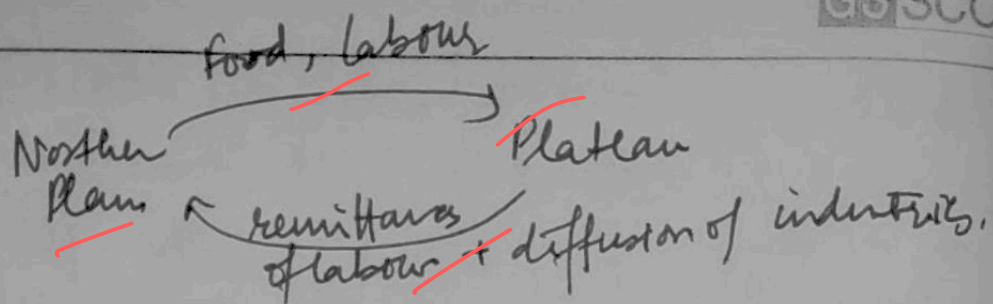 GS SCO
Food, labour
Northern Plateau
Plain
remittances
of labour + diffusion of industries.